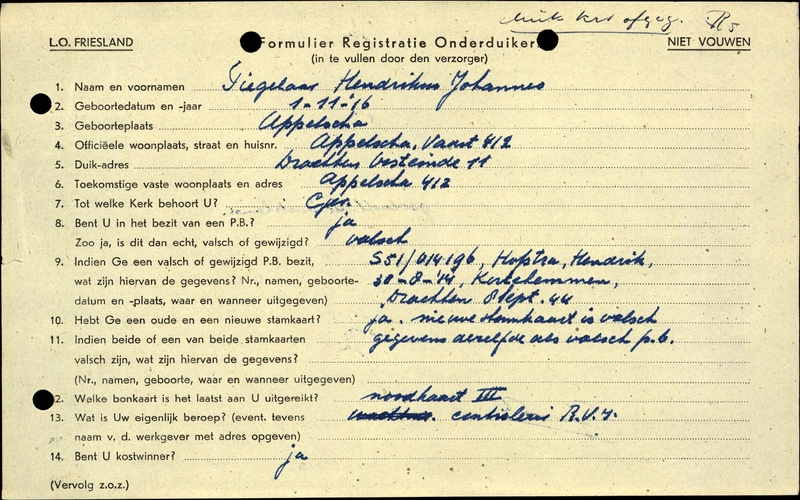 duik krt afgeg. R5
L.O. FRIESLAND
Formulier Registratie Onderduikers
NIET VOUWEN
(in te vullen door den verzorger)
1. Naam en voornamen Tiegelaar Hendrikus Johannes
2. Geboortedatum en -jaar 1-11-'16
3. Geboorteplaats Appelscha
4. Officiëele woonplaats, straat en huisnr. Appelscha, Vaart 412
5. Duik-adres Drachten Oosteinde 11
6. Toekomstige vaste woonplaats en adres Appelscha 412
7. Tot welke Kerk behoort U? Ger.
8. Bent U in het bezit van een P.B.? ja
Zoo ja, is dit dan echt, valsch of gewijzigd? valsch
9. Indien Ge een valsch of gewijzigd P.B. bezit, S51/014196, Hofstra, Hendrik,
wat zijn hiervan de gegevens? Nr., namen, geboorte- 30-8-'14, Kortehemmen,
datum en -plaats, waar en wanneer uitgegeven) Drachten 8 Sept. 44
10. Hebt Ge een oude en een nieuwe stamkaart? ja. nieuwe stamkaart is valsch
11. Indien beide of een van beide stamkaarten gegevens dezelfde als valsch p.b.
valsch zijn, wat zijn hiervan de gegevens?
(Nr., namen, geboorte, waar en wanneer uitgegeven)
2. Welke bonkaart is het laatst aan U uitgereikt? noodkaart III
13. Wat is Uw eigenlijk beroep? (event. tevens controleur R.V.V.
naam v. d. werkgever met adres opgeven)
14. Bent U kostwinner? ja
(Vervolg z.o.z.)